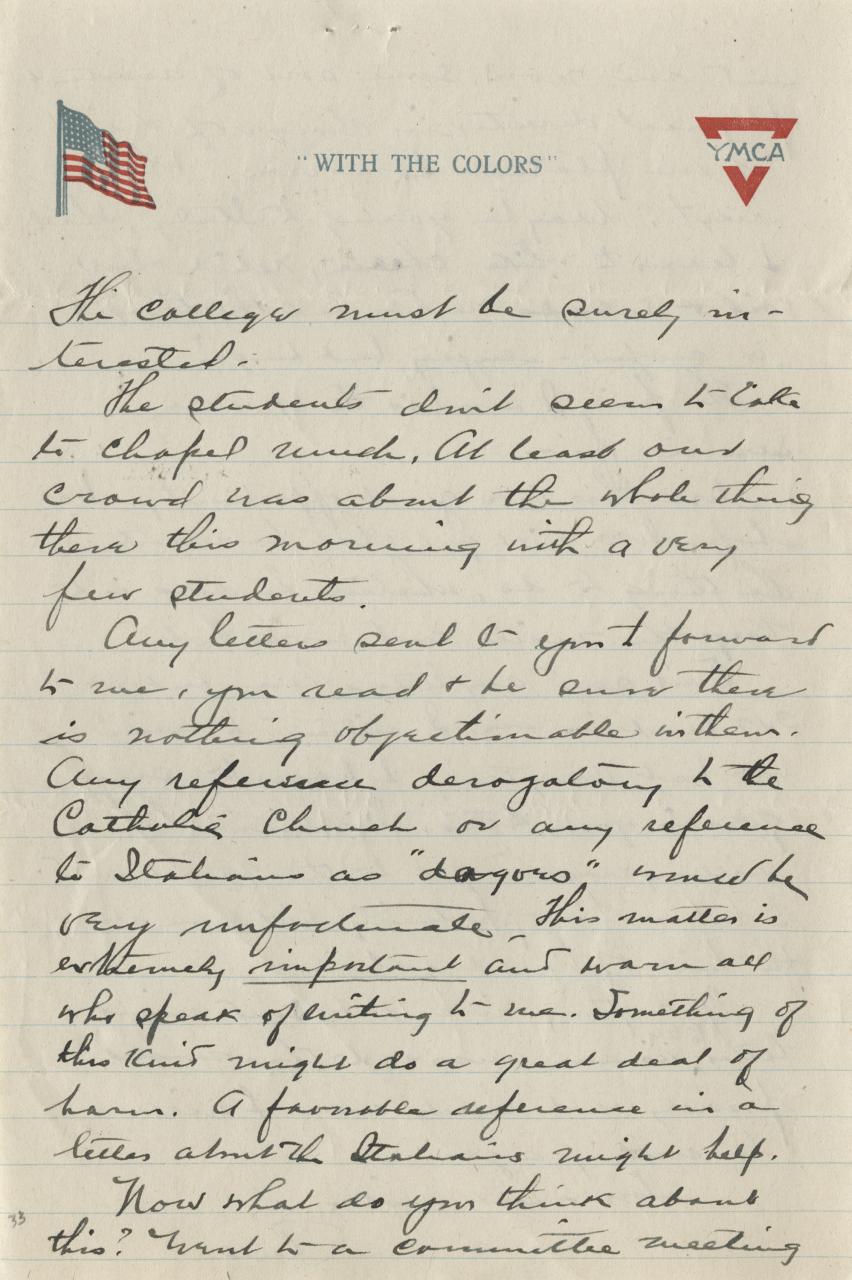 "WITH THE COLORS"
YMCA
The college must be surely in-
terested.
The students don't seem to take
to chapel much. At least our
crowd was about the whole thing
there this morning with a very
few students.
Any letters sent to you to forward
to me, you read + be sure there
is nothing objectionable in them.
Any reference derogatory to the
Catholic Church or any reference
to Italians as "dagoes" would be
very unfortunate. This matter is
extremely important and warn all
who speak of writing to me. Something of
this kind might do a great deal of
harm. A favorable reference in a
letter about the Italians might help.
Now what do you think about
this? Went to a committee meeting
33